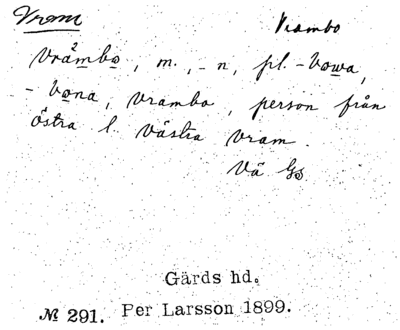 Vram
Vrambo
vrå²mbo, m., -n, pl. -bowa,
-bona, vrambo, person från
östra l. västra Vram.
Vä Gs
Gärds hd.
№ 291. Per Larsson 1899.